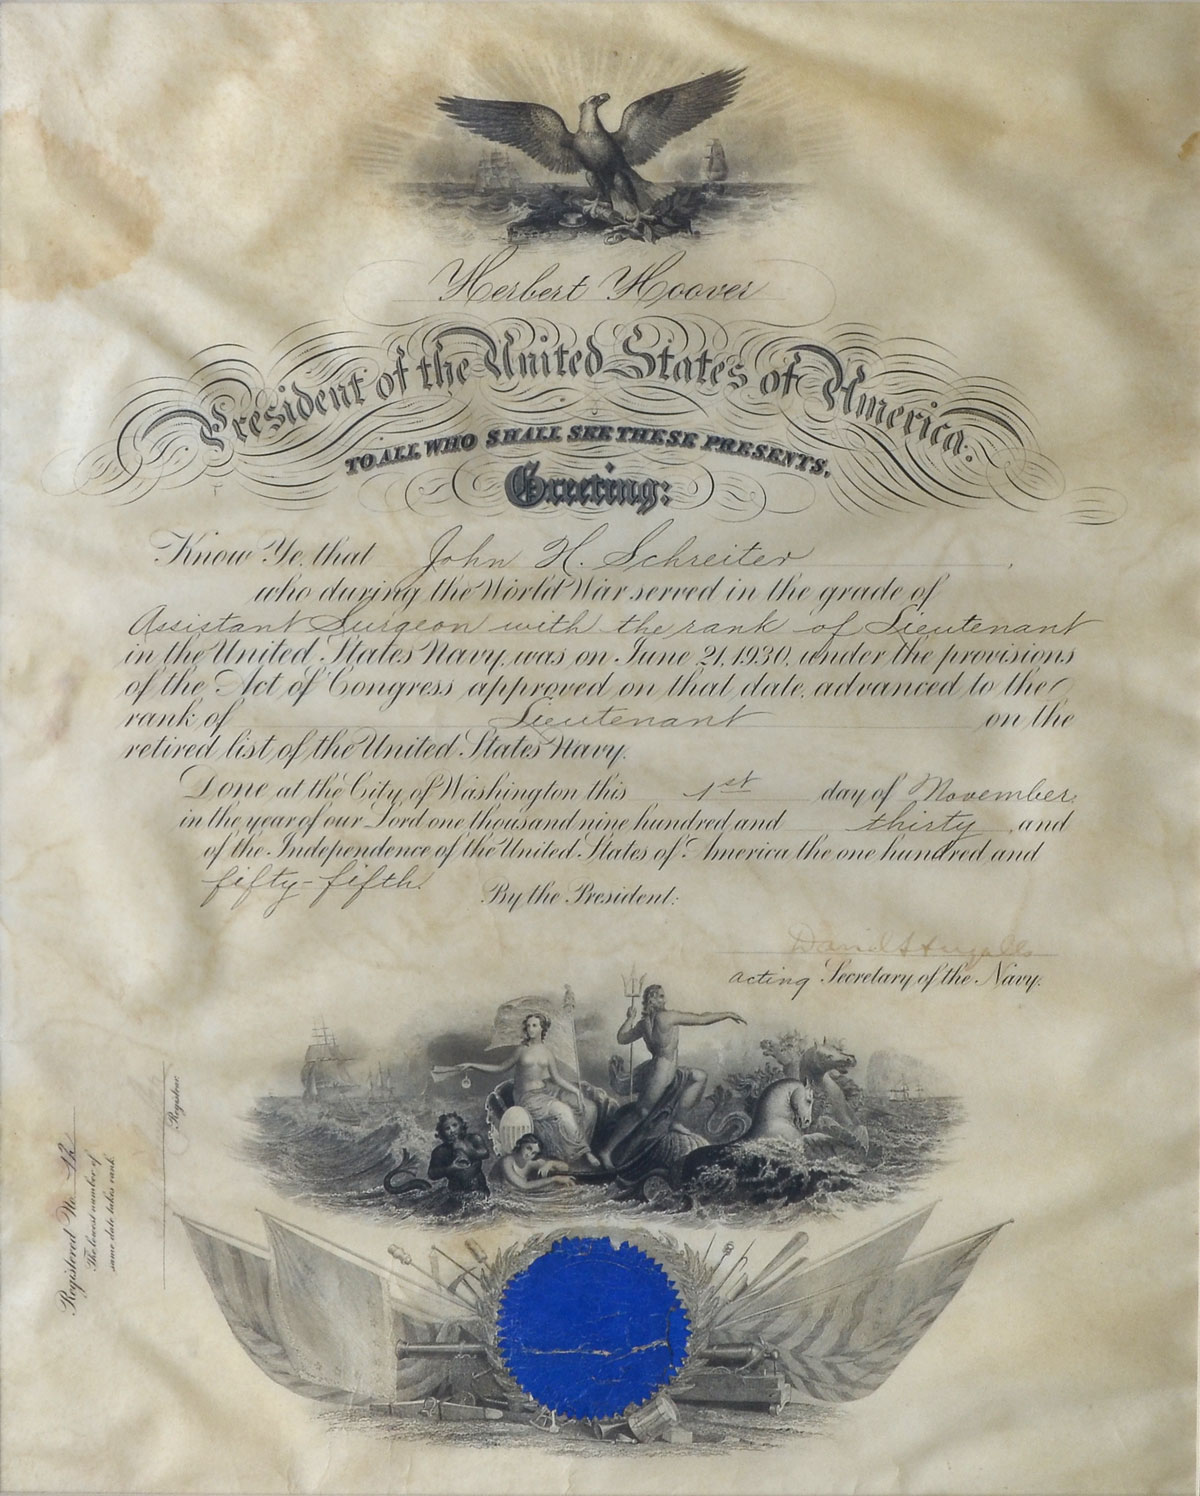 Herbert Hoover
President of the United States of America.
TO ALL WHO SHALL SEE THESE PRESENTS,
Greeting:
Know Ye, that John H. Schreiter,
who during the World War served in the grade of
Assistant Surgeon with the rank of Lieutenant
in the United States Navy, was on June 21, 1930, under the provisions
of the Act of Congress approved on that date, advanced to the
rank of Lieutenant on the
retired list of the United States Navy.
Done at the City of Washington this 1st day of November
in the year of our Lord one thousand nine hundred and thirty, and
of the Independence of the United States of America the one hundred and
fifty-fifth.
By the President:
David S Ingalls
acting Secretary of the Navy.
Registrar.
Registered No.
The lowest number of
same date takes rank.